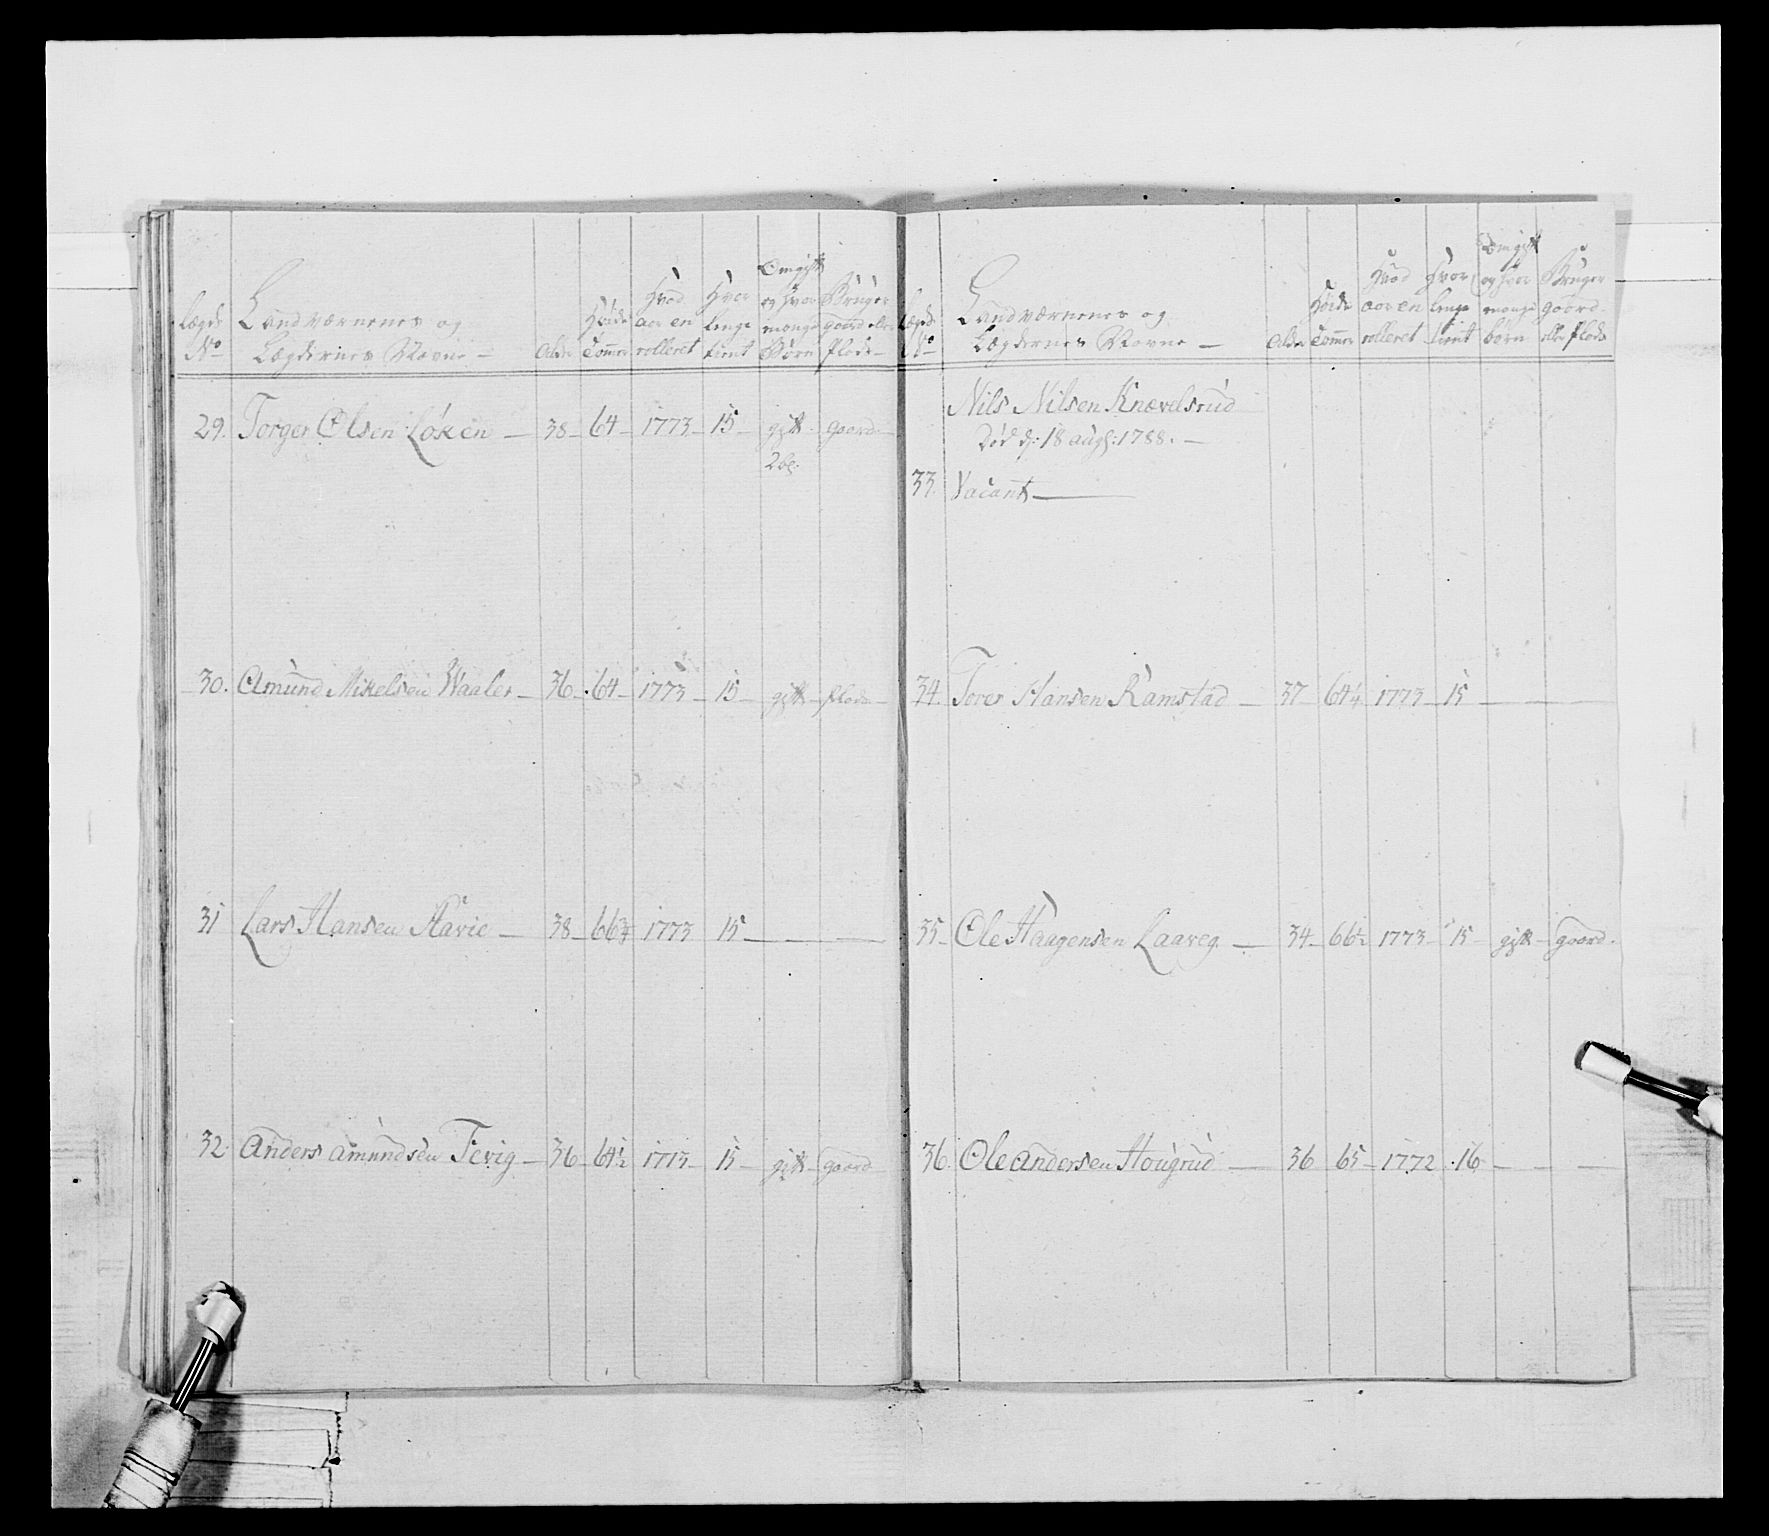 Lægds No | Landværnenes og Lægdernes Navne — | Alder | Høide Tommer | Hvad aar en rolleret | Hvor lenge tient | Om gift og hvor mange Børn | Bruger gaard eller Plads
29. Torger Olsen Løken — 38 — 64 — 1773 — 15 — gift — gaard —
2 b:
30. Amund Mikelsen Waaler — 36 — 64 — 1773 — 15 — gift — plads —
31 Lars Hansen Havie — 38 — 66 3/4 1773 15 — — —
32. Anders Amundsen Tevig — 36 — 64 1/2 1773 — 15 — gift — gaard
Lægds No | Landværnenes og Lægdernes Navne — | Alder | Høide Tommer | Hvad aar en rolleret | Hvor lenge tient | Om gift og hvor mange børn | Bruger gaard eller plads
Nils Nilsen Knævelsrud
Død d: 18 aug: 1788. —
33. Vacant —
34. Torer Hansen Ramstad — 37 — 64 1/4 1773 — 15 — — —
35 — Ole Haagensen Laareg — 34 — 66 1/2 1773 — 15 — gift — gaard.
36. Ole Andersen Hougrud — 36 65 — 1772 . 16 — — —